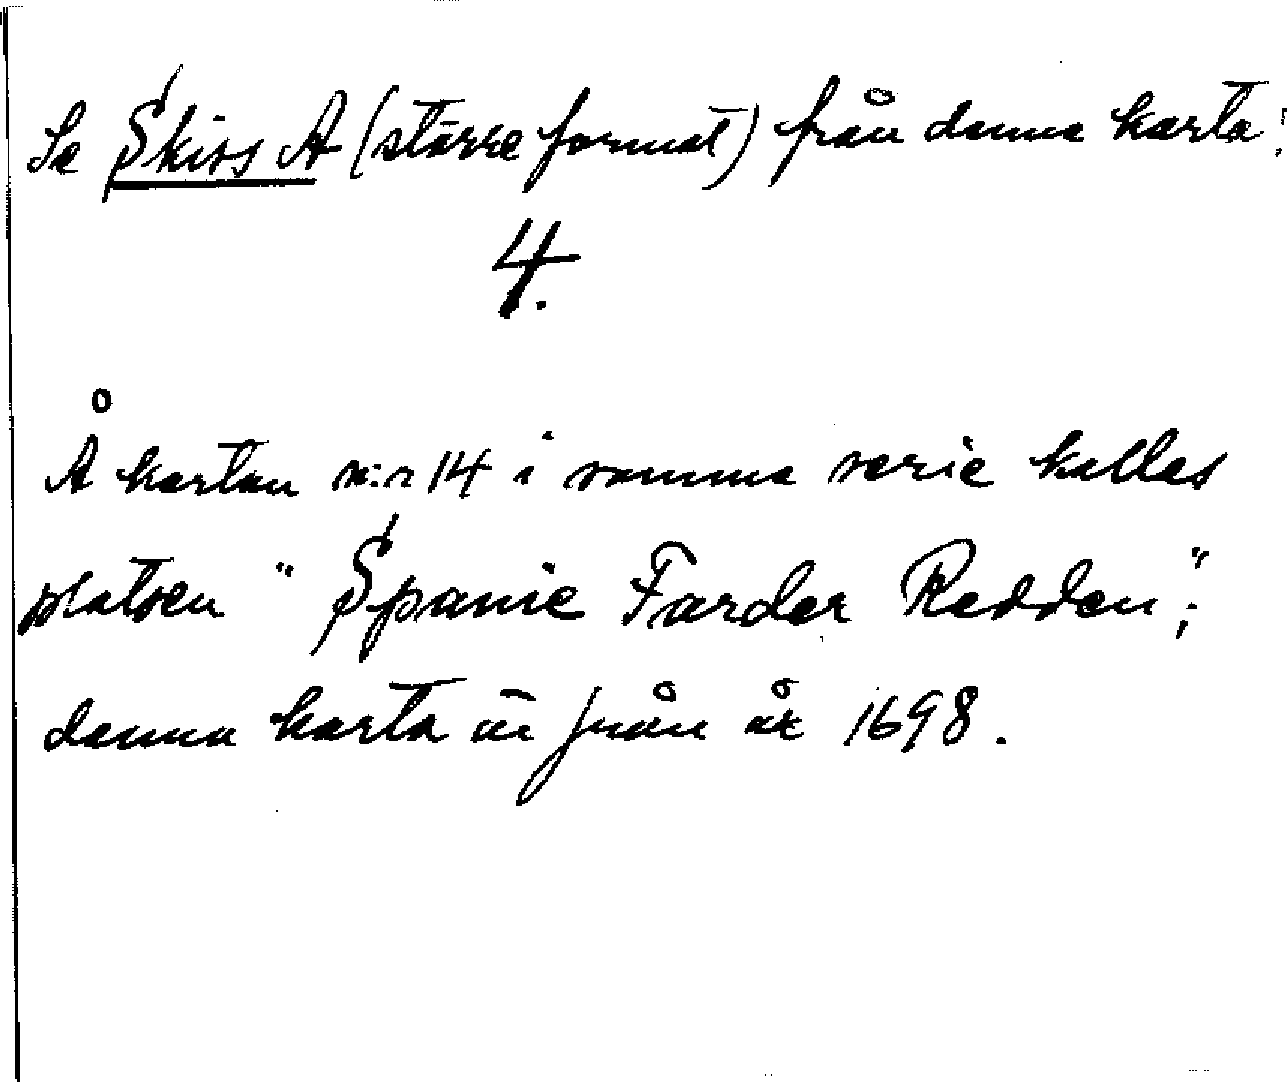 Se Skiss A (större format) från denna karta!
4.
Å kartan n:r 14 i samma serie kallas
platsen "Spanie Farder Redden";
denna karta är från år 1698.